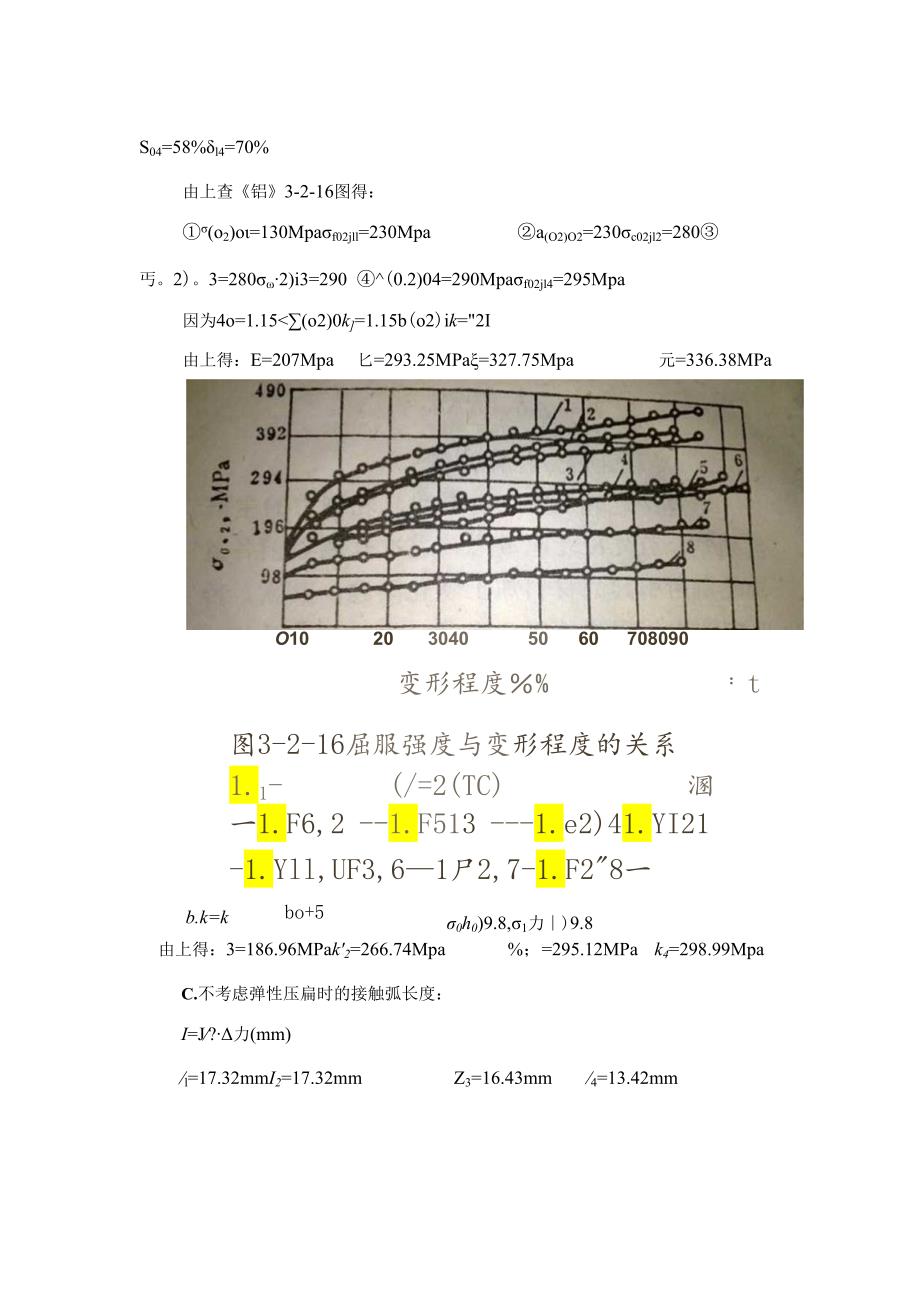 S04=58%δl4=70%
由上查《铝》3-2-16图得：
①σ(o2)oι=130Mpaσf02jll=230Mpa ②a(O2)O2=230σc02jl2=280③
丐。2)。3=280σω·2)i3=290 ④^(0.2)04=290Mpaσf02jl4=295Mpa
因为4o=1.15<∑(o2)0kj=1.15b(o2)ik="2I
由上得：E=207Mpa 匕=293.25MPaξ=327.75Mpa 元=336.38MPa
490
392
294
196
98
σ0.2,·MPa
1 2 3 4 5 6 7 8
O10 20 3040 50 60 708090
变形程度%% ：t
图3-2-16屈服强度与变形程度的关系
1.1- (/=2(TC) 溷
一1.F6,2 --1.F513 ---1.e2)41.YI21
-1.Yll,UF3,6—1尸2,7-1.F2"8一
b.k=k bo+5 σ0h0)9.8,σ1力|)9.8
由上得：3=186.96MPak'2=266.74Mpa %；=295.12MPa k4=298.99Mpa
C.不考虑弹性压扁时的接触弧长度：
I=J√?·Δ力(mm)
/1=17.32mmI2=17.32mm Z3=16.43mm /4=13.42mm